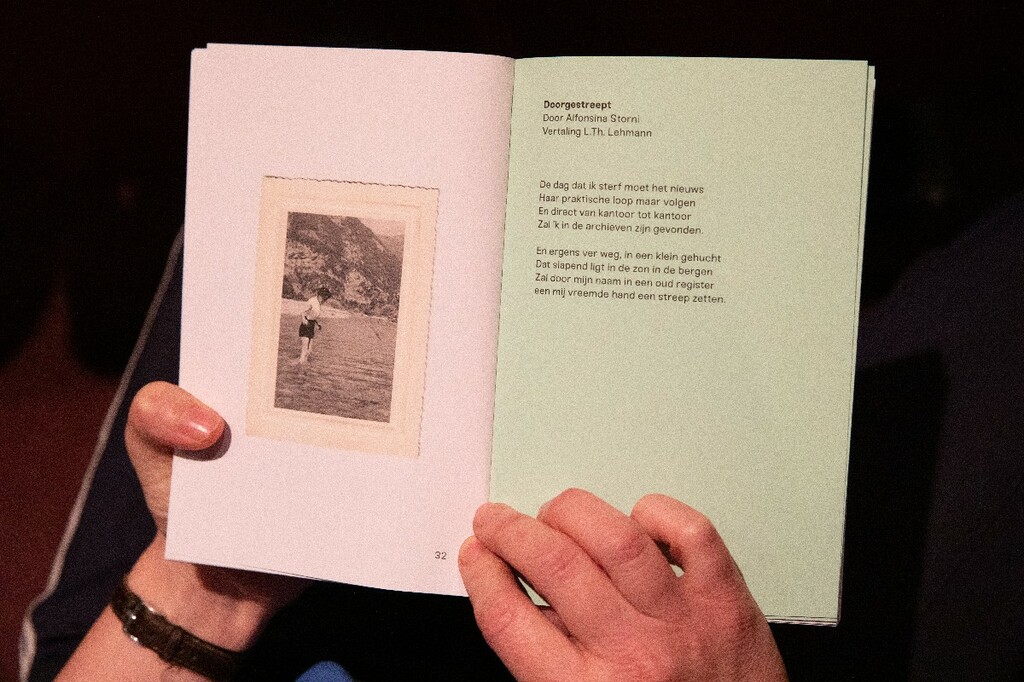 32
Doorgestreept
Door Alfonsina Storni
Vertaling L.Th. Lehmann
De dag dat ik sterf moet het nieuws
Haar praktische loop maar volgen
En direct van kantoor tot kantoor
Zal 'k in de archieven zijn gevonden.
En ergens ver weg, in een klein gehucht
Dat slapend ligt in de zon in de bergen
Zal door mijn naam in een oud register
een mij vreemde hand een streep zetten.